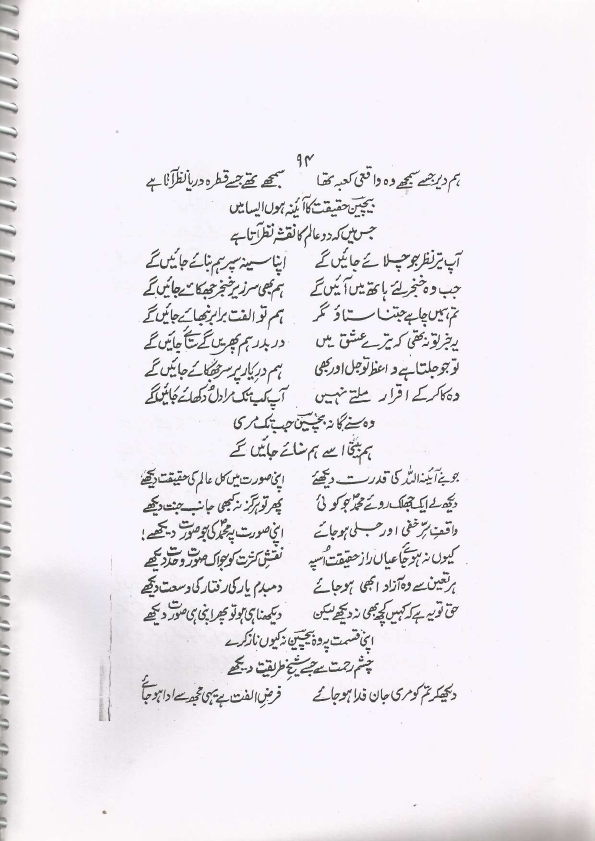 ۹۴
ہم دیر جسے سمجھے وہ واقعی کعبہ تھا سمجھے تھے جسے قطرہ دریا نظر آتا ہے
بیچین حقیقت کا آئینہ ہوں ایسا میں
جس میں کہ دو عالم کا نقشہ نظر آتا ہے
آپ تیر نظر جو چلائے جائیں گے اپنا سینہ سپر ہم بنائے جائیں گے
جب وہ خنجر لئے ہاتھ میں آئیں گے ہم بھی سر زیر خنجر جھکائے جائیں گے
تم ہمیں چاہے جتنا ستاؤ مگر ہم تو الفت برابر نبھائے جائیں گے
یہ خبر تو نہ تھی کہ ترے عشق میں در بدر ہم پھریں گے ستائے جائیں گے
تو جو جلتا ہے واعظ تو جل اور بھی ہم در یار پر سر جھکائے جائیں گے
وہ کا کر کے اقرار ملتے نہیں آپ کب تک مرا دل دکھائے جائیں گے
وہ سنے گا نہ بیچین جب تک مری
ہم اسے ہم سنائے جائیں گے
جو بنے آئینہ اللہ کی قدرت دیکھے اپنی صورت میں کل عالم کی حقیقت دیکھے
دیکھ لے ایک جھلک روئے محمد جو کوئی پھر تو ہرگز نہ کبھی جانب جنت دیکھے
واقف سر خفی اور جلی ہو جائے اپنی صورت پہ محمد کی جو صورت دیکھے!
کیوں نہ ہو جائے عیاں راز حقیقت اسپہ نقش کثرت کو جو اک صورت وحدت دیکھے
ہر تعین سے وہ آزاد ابھی ہو جائے دمبدم یار کی رفتار کی وسعت دیکھے
حق تو یہ ہے کہ کہیں کچھ بھی نہ دیکھے لیکن دیکھنا ہی ہو تو پھر اپنی ہی صورت دیکھے
اپنی قسمت پہ وہ بیچین نہ کیوں ناز کرے
چشم رحمت سے جسے شیخ طریقت دیکھے
دیکھ کر تم کو مری جان فدا ہو جائے فرض الفت ہے یہی مجھ سے ادا ہو جائے